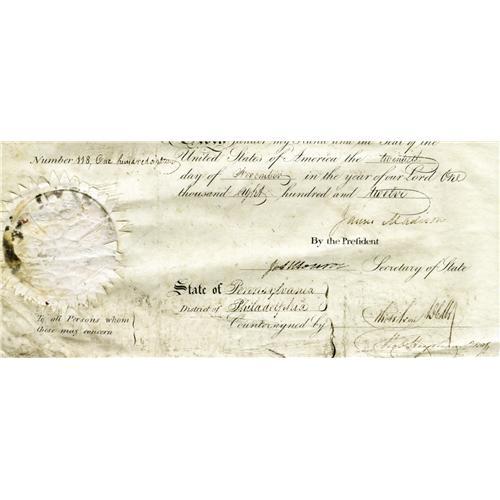 Number 118, One hundred
under my Hand and the Seal of the
United States of America the twentieth
day of November in the year of our Lord One
thousand eight hundred and twelve
James Madison
By the Prefident
Jas Monroe Secretary of State
State of Pennsylvania
District of Philadelphia
Countersigned by
To all Persons whom
these may concern